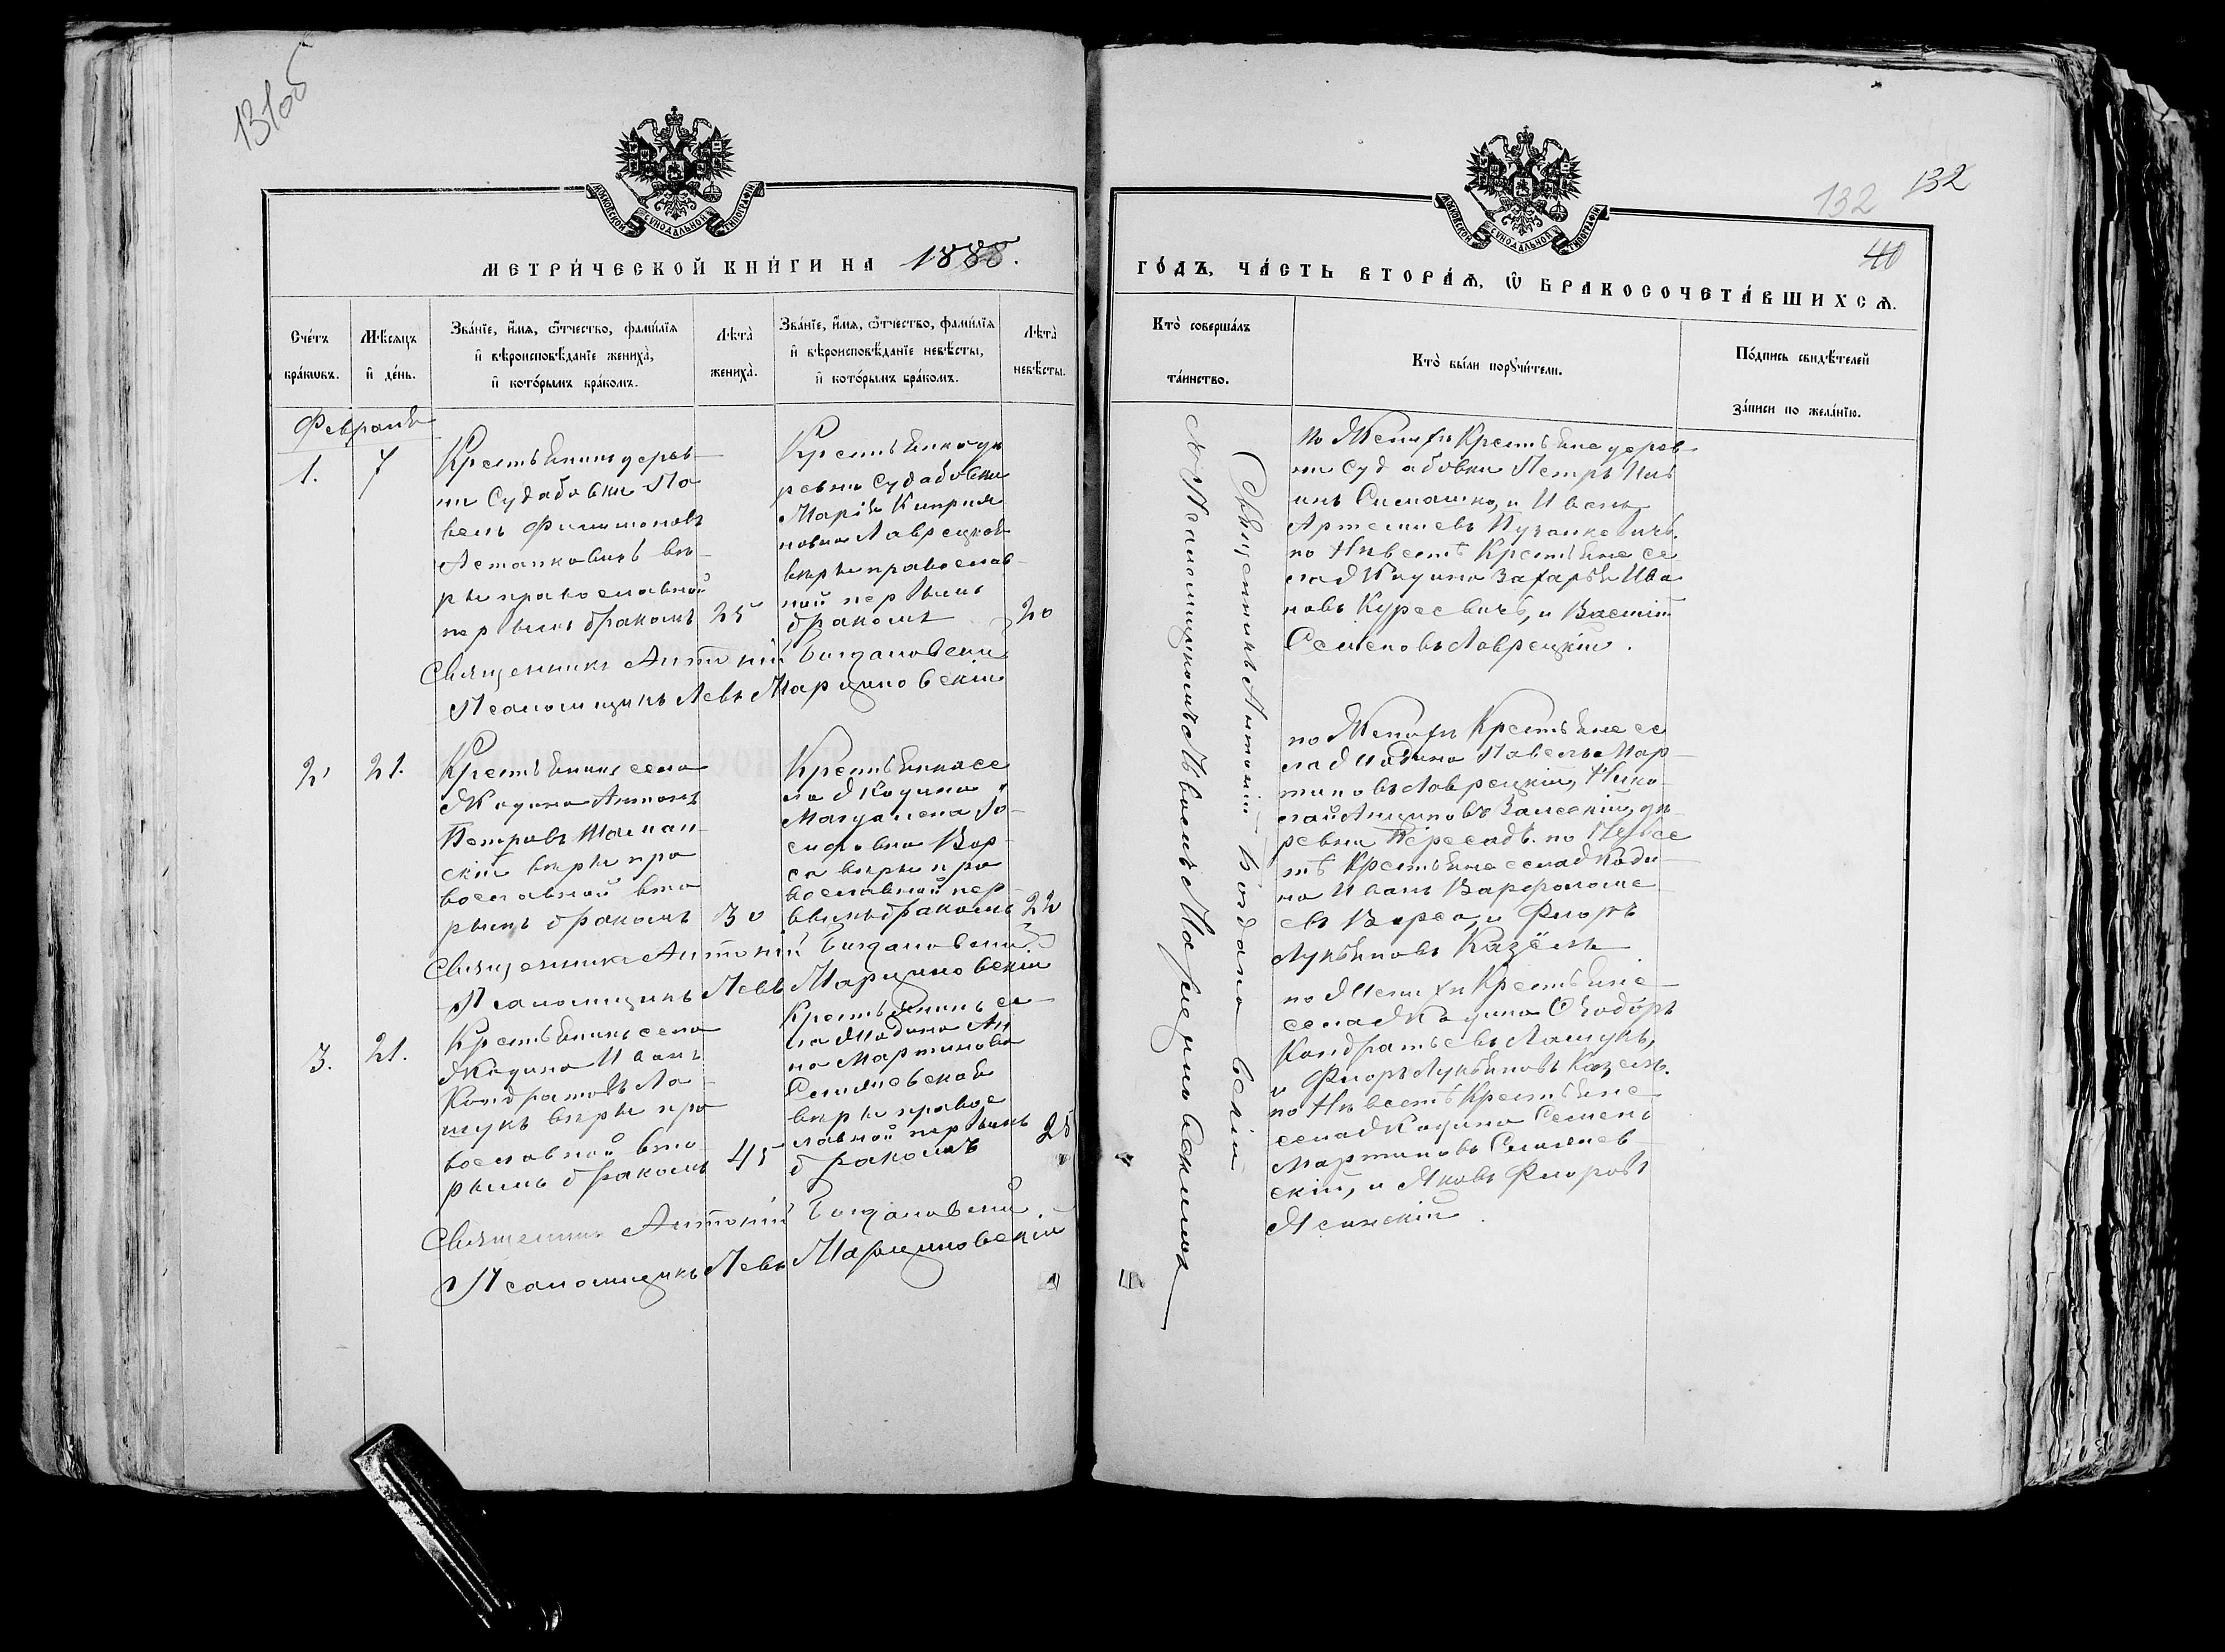 131об
МОСКОВСКОЙ СѴНОДАЛЬНОЙ ТИПОГРАФІИ
МЕТРИ́ЧЕСКОЙ КНИ́ГИ НА 1888.
Сче́тъ
бра́ковъ.
Мѣ́сяцъ
и҆ де́нь.
Зва́нїе, и҆́мѧ, ѻ҆́тчество, фами́лїѧ
и҆ вѣроисповѣ́данїе жениха̀,
и҆ кото́рымъ бра́комъ.
Лѣ́та
жениха̀.
Зва́нїе, и҆́мѧ, ѻ҆́тчество, фами́лїѧ
и҆ вѣроисповѣ́данїе невѣ́сты,
и҆ кото́рымъ бра́комъ.
Лѣ́та
невѣ́сты.
Февраль
1.
7
Крестьянинъ дерев-
ни Судабовки Па
велъ Филимоновъ
вѣ-
ры православной
первымъ бракомъ
25
Крестьянка де
ревни Судабовки
Марія Кипрія
новна Лаврецкая
вѣры православ-
ной первымъ
бракомъ
20
Священникъ Антоній Богдановскій
Псаломщикъ Левъ Марциновскій
2
21.
Крестьянинъ села
Жодина Антонъ
Петровъ
скій вѣры пра
вославной вто
рымъ бракомъ
30
Крестьянка се
ла Жодина
Магдалена Іо-
сифовна Вор-
са вѣры пра
вославной пер-
вымъ бракомъ
22
Священникъ Антоній Богдановскій
Псаломщикъ Левъ Марциновскій
3.
21.
Крестьянинъ села
Жодина Иванъ
Кондратовъ Ла-
шукъ вѣры пра
вославной вто
рымъ бракомъ
45
Крестьянинъ се
ла Жодина Ан
на Мартинова
вѣры правос
лавной первымъ
бракомъ
25
Священникъ Антоній Богдановскій
Псаломщикъ Левъ Марциновскій
132 132
МОСКОВСКОЙ СѴНОДАЛЬНОЙ ТИПОГРАФІИ
40
ГО́ДЪ, ЧА́СТЬ ВТОРА́Ѧ, Ѡ҆ БРАКОСОЧЕТА́ВШИХСѦ.
Кто̀ соверша́лъ
та́инство.
Кто̀ бы́ли порꙋчи́тели.
По́дпись свидѣ́телей
за́писи по жела́нїю.
Священникъ Антоній Богдановскій
съ Псаломщикомъ Львомъ Марциновскимъ
по Женихѣ Крестьяне дерев-
ни Судабовки Петръ Иль
инъ Симашко, и Иванъ
Артемиевъ
по Невѣстѣ Крестьяне се
ла Жодина Захарія Ива
новъ Куревичъ, и Василій
Семеновъ Лаврецкій.
по Женихѣ Крестьяне се
ла Жодина Павелъ Мар-
тиновъ Лаврецкій, Нико-
лай де-
ревни по Невѣс
тѣ Крестьяне села Жоди
на Иванъ Варфоломе
евъ Ворса, и Флоръ
Лукьяновъ Казёлъ
по Женихѣ Крестьяне
села Жодина Ѳеодоръ
Кондратьевъ Лашукъ,
и Флоръ Лукьяновъ Казелъ.
по Невѣстѣ Крестьяне
села Жодина Семенъ
Мартиновъ
скій, и Яковъ Флоровъ
Ясинскій.